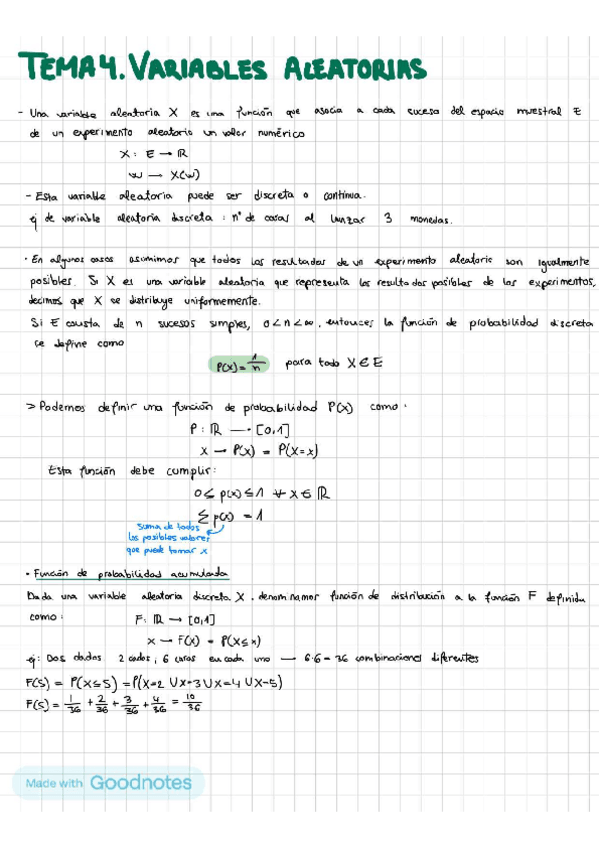 TEMA 4. VARIABLES ALEATORIAS
- Una variable aleatoria X es una función que asocia a cada suceso del espacio muestral E
de un experimento aleatorio un valor numérico
X : E → ℝ
w → X(w)
- Esta variable aleatoria puede ser discreta o continua.
ej de variable aleatoria discreta : nº de caras al lanzar 3 monedas.
· En algunos casos asumimos que todos los resultados de un experimento aleatorio son igualmente
posibles. Si X es una variable aleatoria que representa los resultados posibles de los experimentos,
decimos que X se distribuye uniformemente.
Si E consta de n sucesos simples, 0<n<∞, entonces la función de probabilidad discreta
se define como
P(x) = 1/n para todo X ∈ E
> Podemos definir una función de probabilidad P(x) como :
P : ℝ → [0,1]
x → P(x) = P(X=x)
Esta función debe cumplir:
0 ≤ p(x) ≤ 1 ∀ x ∈ ℝ
Σ p(x) = 1
suma de todos
los posibles valores
que puede tomar x
· Función de probabilidad acumulada
Dada una variable aleatoria discreta X, denominamos función de distribución a la función F definida
como : F: ℝ → [0,1]
x → F(x) = P(X≤x)
ej: Dos dados 2 dados, 6 caras en cada uno → 6·6 = 36 combinaciones diferentes
F(5) = P(X≤5) = P(X=2 ∪ X=3 ∪ X=4 ∪ X=5)
F(5) = 1/36 + 2/36 + 3/36 + 4/36 = 10/36
Made with Goodnotes